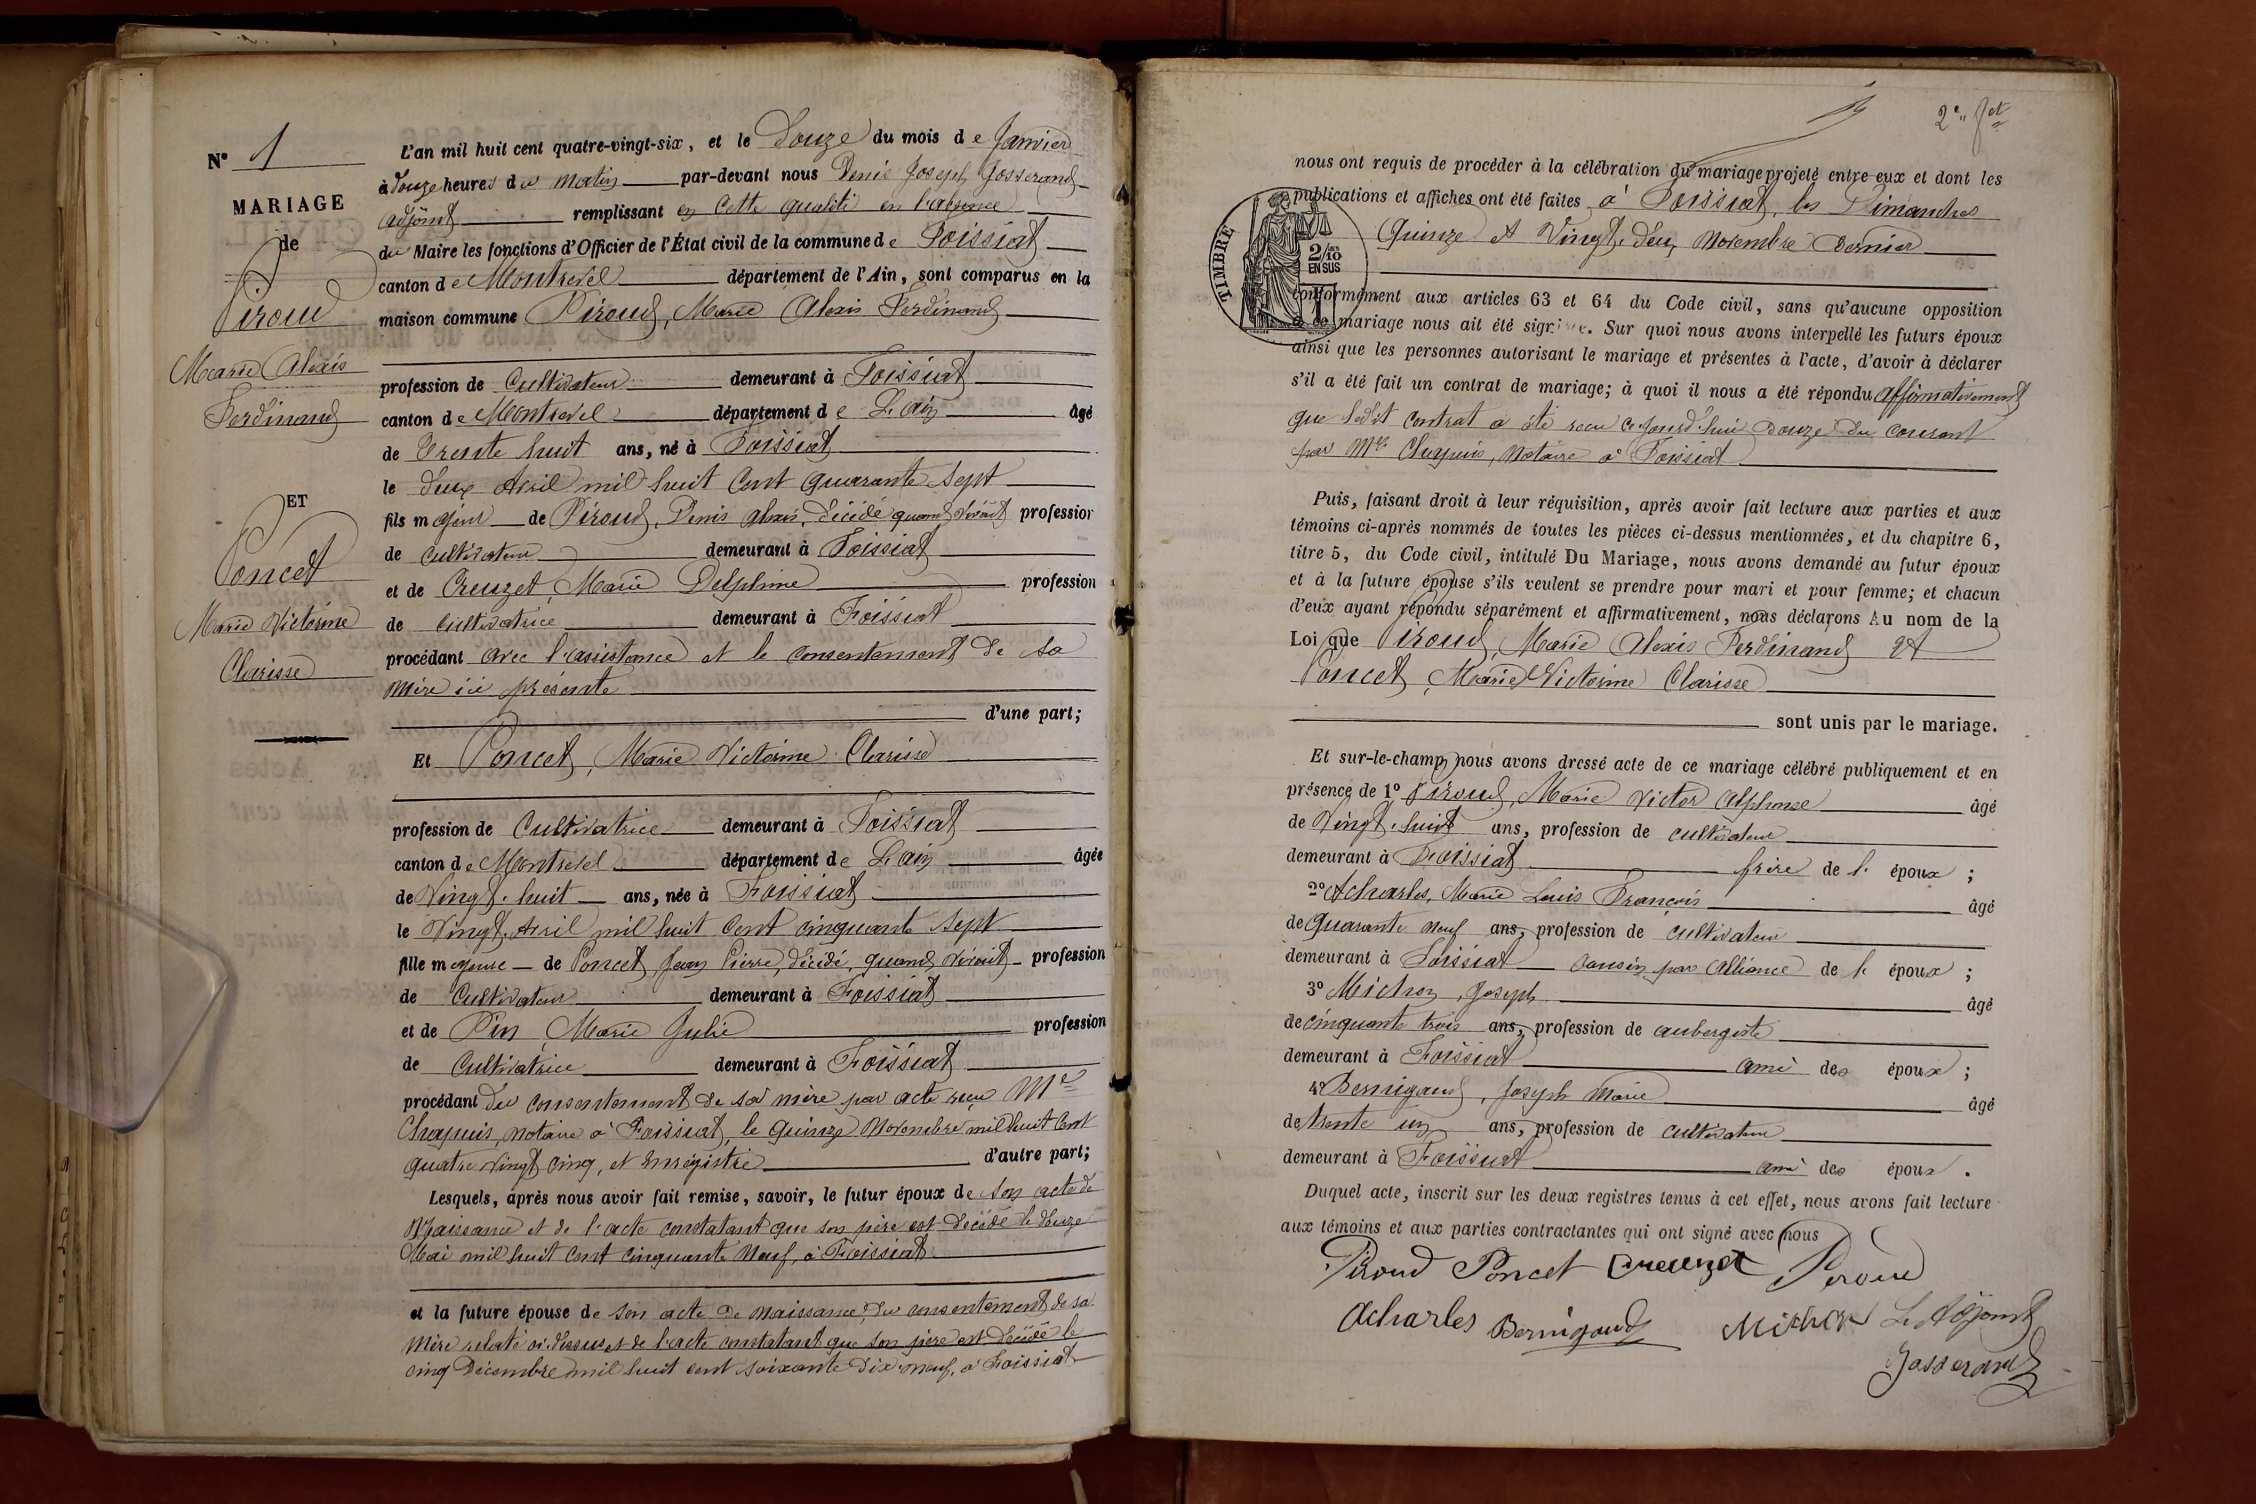 N° 1
MARIAGE
de
Piroud
Marie Alexis
Ferdinand
ET
Poncet
Marie Victorine
Clarisse
L'an mil huit cent quatre-vingt-six, et le Douze du mois de Janvier
à Douze heures du matin par-devant nous Denis Joseph Josserand
adjoint remplissant en cette qualité en l'absence
du Maire les fonctions d'Officier de l'État civil de la commune de Foissiat
canton de Montrevel département de l'Ain, sont comparus en la
maison commune Piroud, Marie Alexis Ferdinand
profession de Cultivateur demeurant à Foissiat
canton de Montrevel département de L'ain âgé
de Trente huit ans, né à Foissiat
le deux Avril mil huit Cent quarante sept
fils majeur de Piroud, Denis alexis, décédé quand vivait profession
de cultivateur demeurant à Foissiat
et de Creuzet, Marie Delphine profession
de cultivatrice demeurant à Foissiat
procédant avec l'assistance et le consentement de sa
mère ici présente
d'une part;
Et Poncet, Marie Victorine Clarisse
profession de Cultivatrice demeurant à Foissiat
canton de Montrevel département de L'ain âgée
de Vingt-huit ans, née à Foissiat
le Vingt Avril mil huit Cent cinquante sept
fille majeure de Poncet Jean Pierre, décédé, quand vivait profession
de Cultivateur demeurant à Foissiat
et de Pin, Marie Julie profession
de Cultivatrice demeurant à Foissiat
procédant du consentement de sa mère par acte reçu Me
Chapuis, notaire à Foissiat, le quinze Novembre mil huit Cent
quatre vingt cinq, et Enregistré d'autre part;
Lesquels, après nous avoir fait remise, savoir, le futur époux de son acte de
Naissance et de l'acte constatant que son père est décédé le douze
Mai mil huit cent cinquante Neuf, à Foissiat
et la future épouse de son acte de naissance, du consentement de sa
Mère relaté ci-dessus et de l'acte constatant que son père est décédé le
cinq Décembre mil huit cent soixante Dix-neuf, à Foissiat
2e
nous ont requis de procéder à la célébration du mariage projeté entre eux et dont les
publications et affiches ont été faites à Foissiat, les Dimanches
Quinze et Vingt-deux Novembre Dernier
TIMBRE
2/10
EN SUS
conformément aux articles 63 et 64 du Code civil, sans qu'aucune opposition
à ce mariage nous ait été signifiée. Sur quoi nous avons interpellé les futurs époux
ainsi que les personnes autorisant le mariage et présentes à l'acte, d'avoir à déclarer
s'il a été fait un contrat de mariage; à quoi il nous a été répondu affirmativement
que ledit contrat a été reçu cejourd'hui Douze du courant
par Me Chapuis, Notaire à Foissiat
Puis, faisant droit à leur réquisition, après avoir fait lecture aux parties et aux
témoins ci-après nommés de toutes les pièces ci-dessus mentionnées, et du chapitre 6,
titre 5, du Code civil, intitulé Du Mariage, nous avons demandé au futur époux
et à la future épouse s'ils veulent se prendre pour mari et pour femme; et chacun
d'eux ayant répondu séparément et affirmativement, nous déclarons Au nom de la
Loi que Piroud, Marie Alexis Ferdinand et
Poncet, Marie Victorine Clarisse
sont unis par le mariage.
Et sur-le-champ nous avons dressé acte de ce mariage célébré publiquement et en
présence de 1° Piroud, Marie Victor Alphonse âgé
de Vingt-huit ans, profession de cultivateur
demeurant à Foissiat frère de l' époux ;
2° Acharles, Marie Louis François âgé
de Quarante neuf ans, profession de cultivateur
demeurant à Foissiat cousin par alliance de l' époux ;
3° Michon, Joseph âgé
de cinquante trois ans, profession de aubergiste
demeurant à Foissiat ami des époux ;
4° Bernigaud, Joseph Marie âgé
de trente un ans, profession de cultivateur
demeurant à Foissiat ami des époux .
Duquel acte, inscrit sur les deux registres tenus à cet effet, nous avons fait lecture
aux témoins et aux parties contractantes qui ont signé avec nous
Piroud Poncet Creuzet Piroud
Acharles Bernigaud Michon L'Adjoint
Josserand